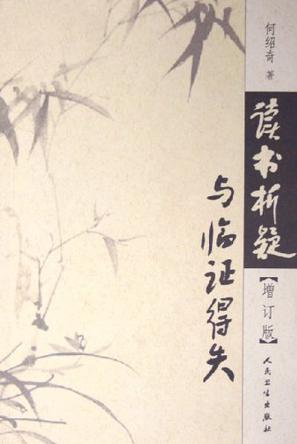 何绍奇 著
读书析疑
与临证得失
【增订版】
人民卫生出版社